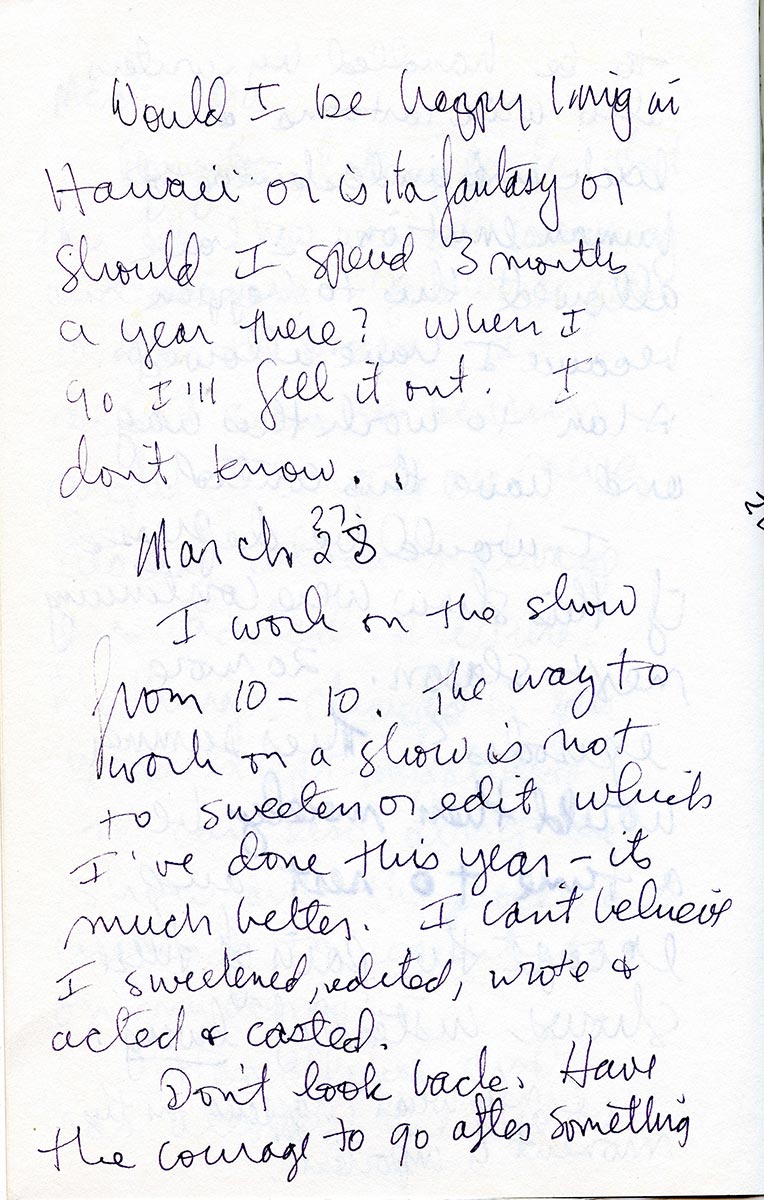 Would I be happy living in
Hawaii or is it a fantasy or
should I spend 3 months
a year there? When I
go I'll feel it out. I
don't know...
March 28
27
I work on the show
from 10-10. The way to
work on a show is not
to sweeten or edit which
I've done this year - its
much better. I can't believe
I sweetened, edited, wrote &
acted & casted.
Don't look back. Have
the courage to go after something